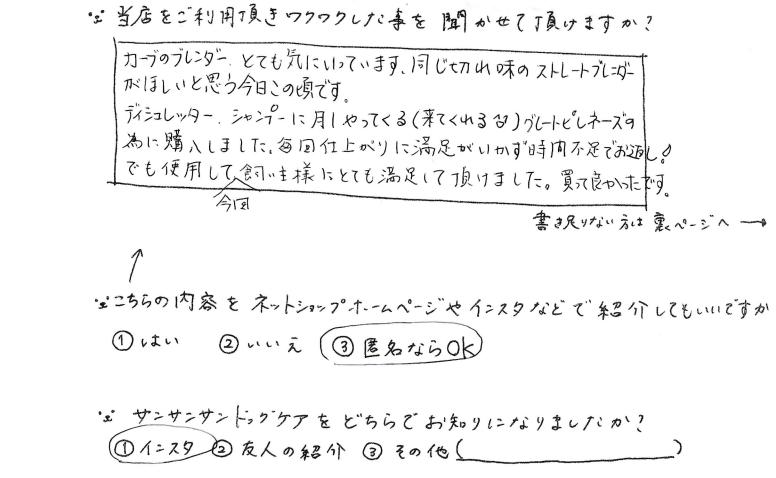 ※ 当店をご利用頂きワクワクした事を聞かせて頂けますか?
カーブのブレンダー、とても気にいっています、同じ切れ味のストレートブレンダー
がほしいと思う今日この頃です。
ディシュレッター、シャンプーに月1やってくる(来てくれる)グレートピレネーズの
為に購入しました、毎回仕上がりに満足がいかず時間不足でお返し!
でも使用して飼い主様にとても満足して頂けました。買って良かったです。
今回
書き足りない方は裏ページへ →
※こちらの内容をネットショップホームページやインスタなどで紹介してもいいですか
① はい ② いいえ ③ 匿名ならOK
※ サンサンサンドッグケアをどちらでお知りになりましたか?
① インスタ ② 友人の紹介 ③ その他( )